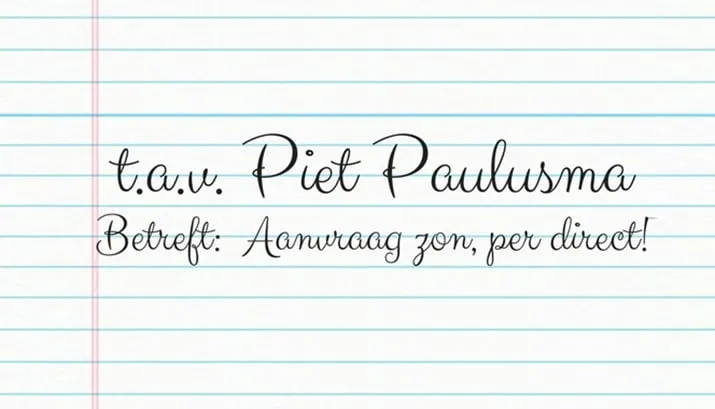 t.a.v. Piet Paulusma
Betreft: Aanvraag zon, per direct!